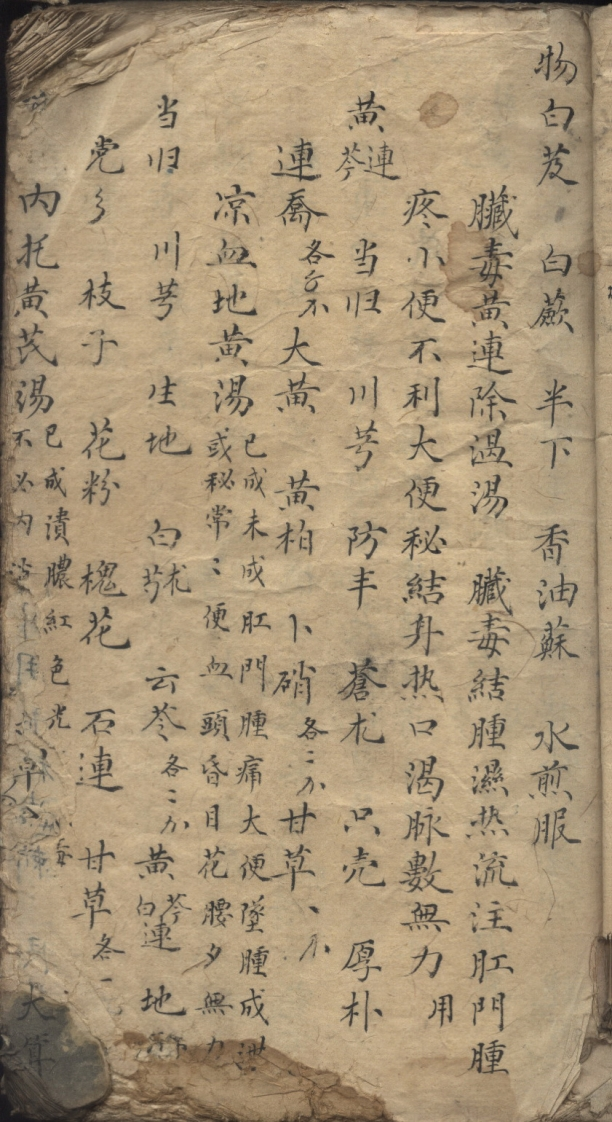 物白芨 白蔹 半下 香油蘇 水煎服
臓毒黄連除湿湯 臓毒結腫濕热流注肛門腫
疼小便不利大便秘結身热口渴脉數無力用
黄連芩 当归 川芎 防丰 蒼朮 只壳 厚朴
連喬各 大黄 黄柏 卜硝各二 甘草
凉血地黄湯已成未成肛門腫痛大便墜腫成
或秘常〻便血頭昏目花腰夕無力
当归 川芎 生地 白朮芍 云苓各二 黄芩白連 地
党 枝子 花粉 槐花 石連 甘草各一
内托黄芪湯已成潰膿紅色光
不必内